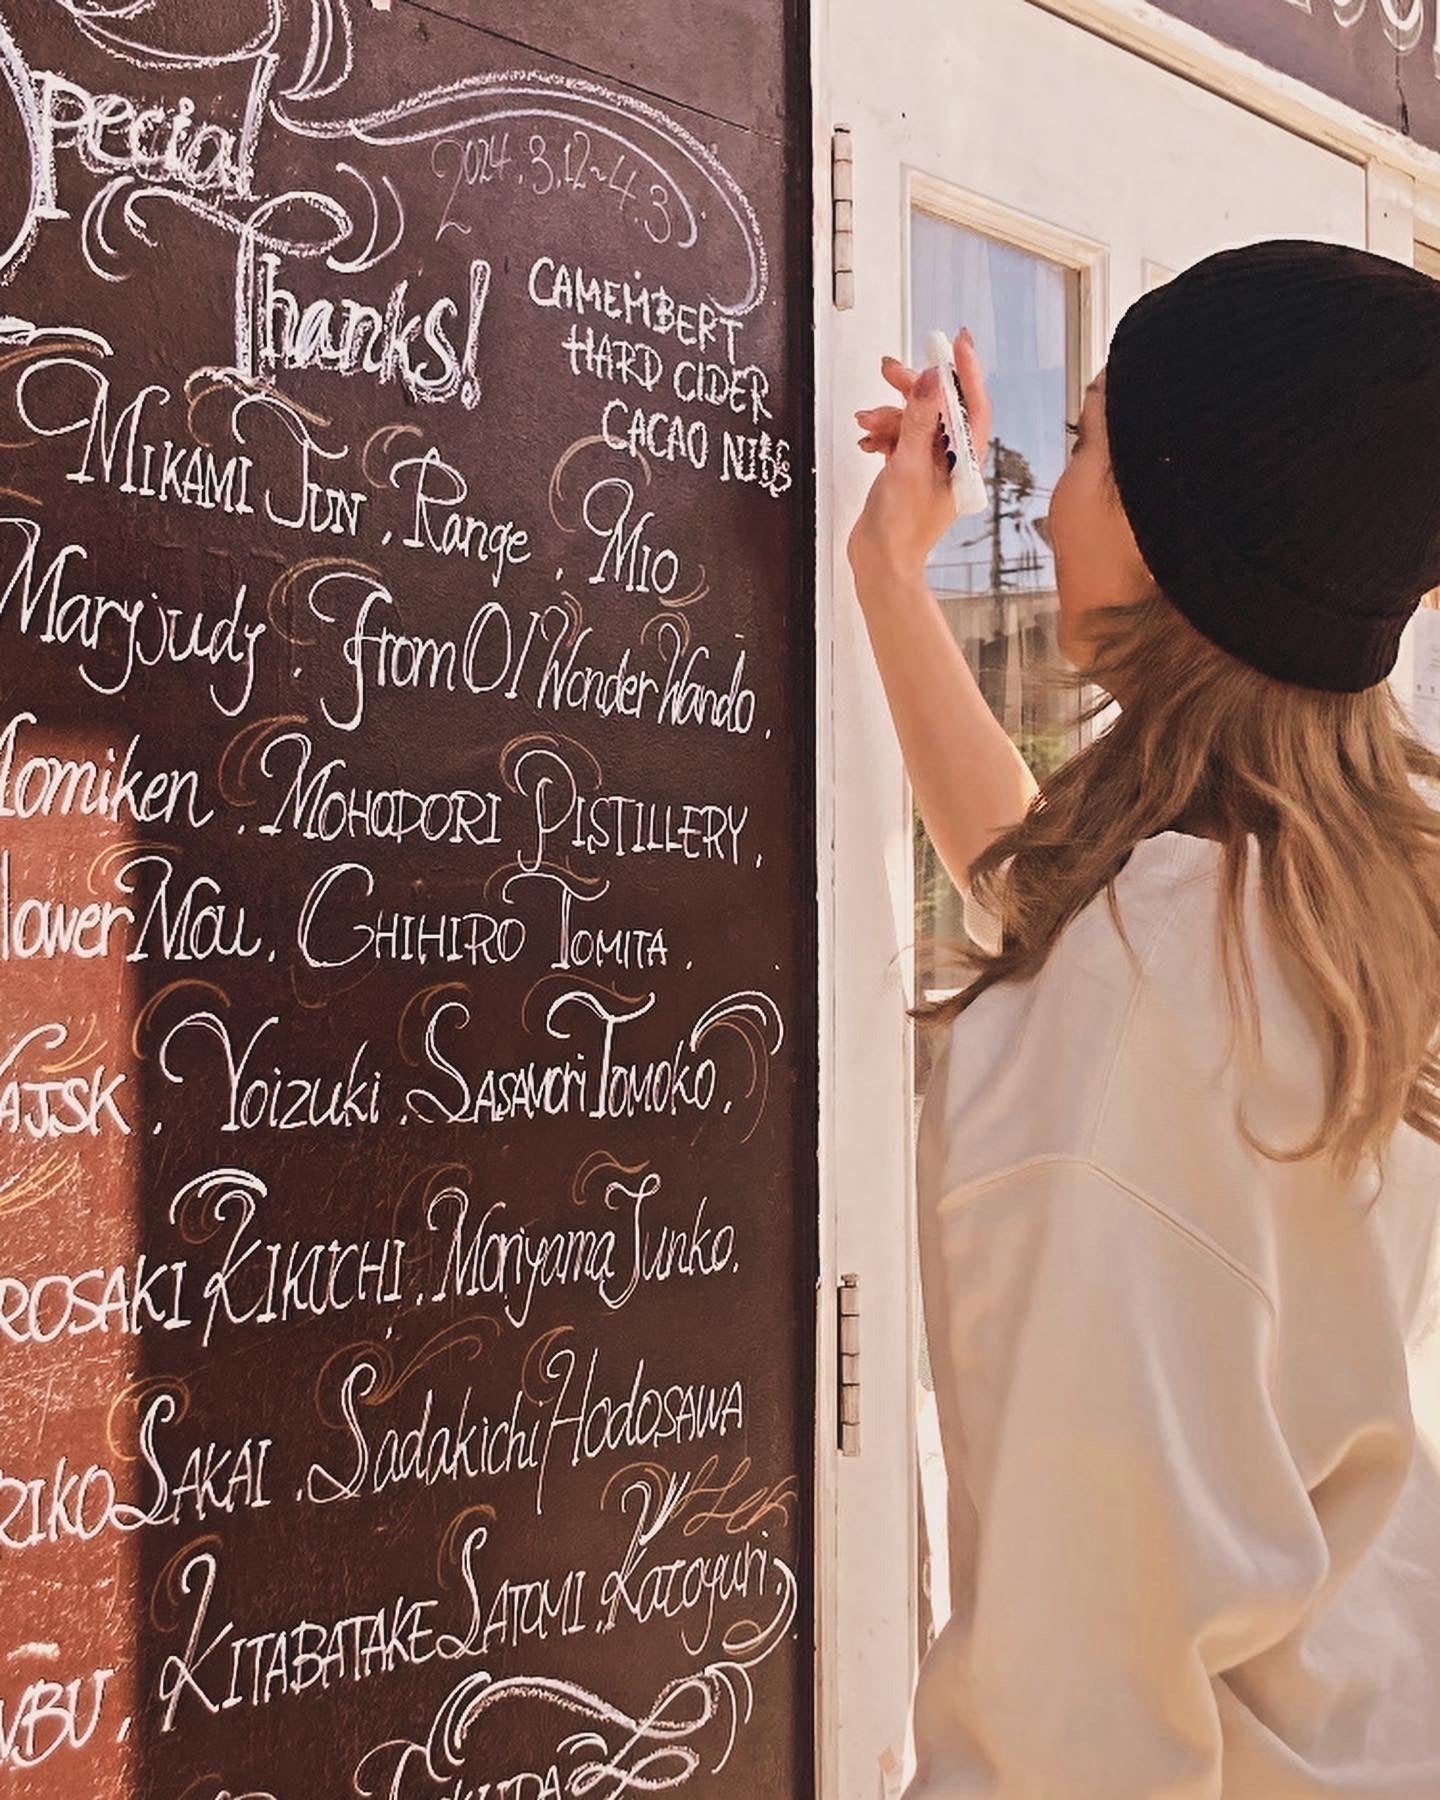 Special
2024.3.12~4.3
Thanks!
CAMEMBERT
HARD CIDER
CACAO NIBS
MIKAMI JUN. Range. MIO
Maryjudy. from 01 Wonder Wando.
Momiken. MOHODORI DISTILLERY.
lower Mou. CHIHIRO TOMITA.
AJSK. Yoizuki. SASAMORI TOMOKO.
ROSAKI KIKUCHI. Moriyama Junko.
RIKO SAKAI. Sadakichi HODOSAWA
KITABATAKE SATOMI. Katoyuri.
BU.